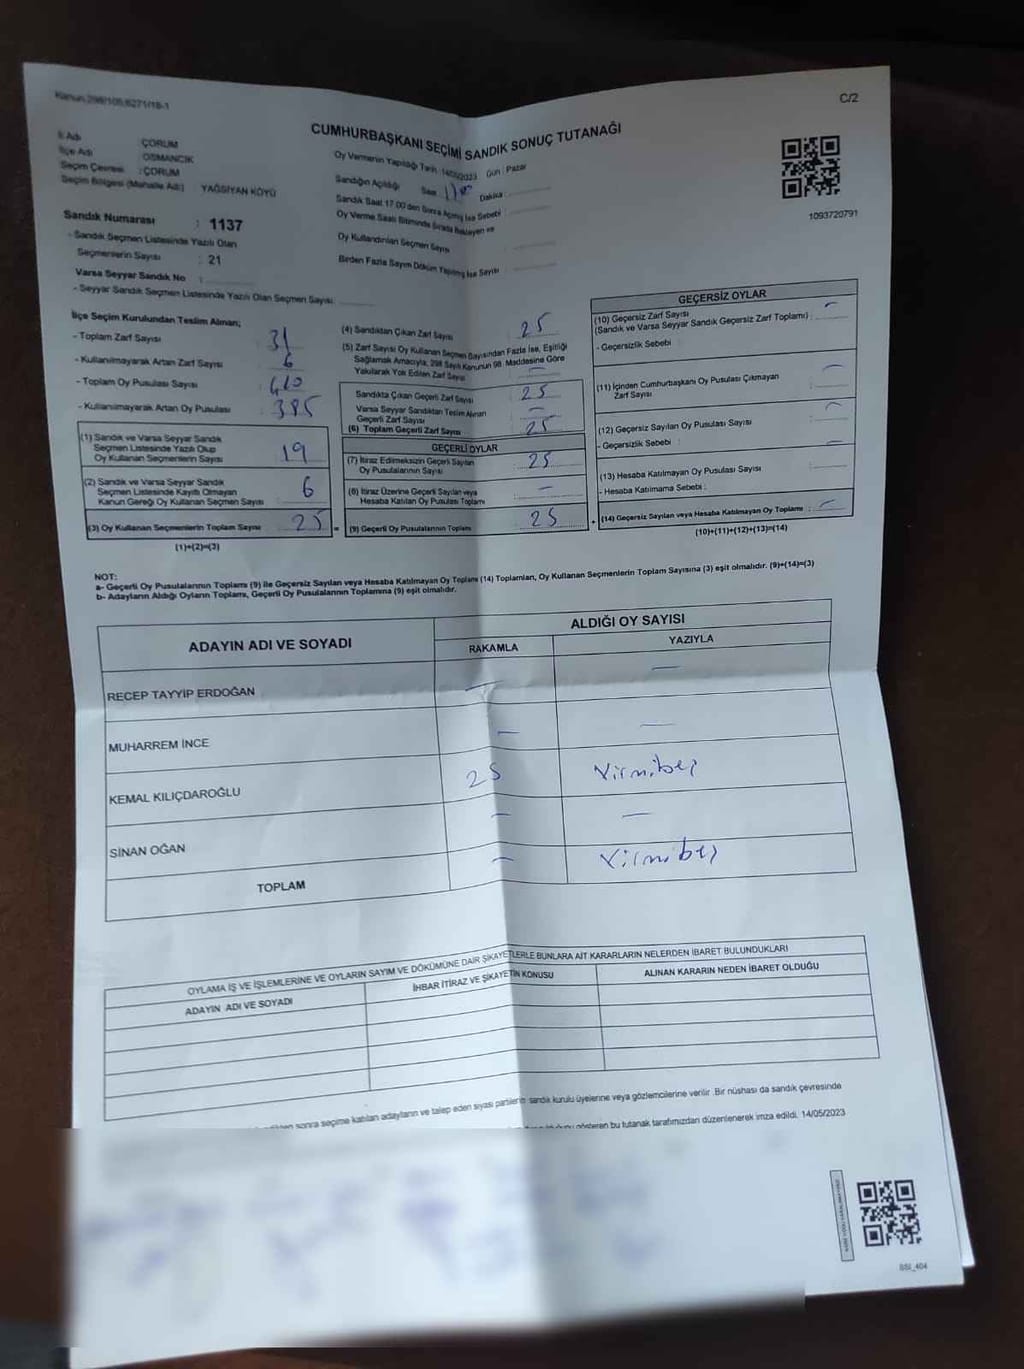 Kanun:298/105,6271/18-1
C/2
CUMHURBAŞKANI SEÇİMİ SANDIK SONUÇ TUTANAĞI
İl Adı : ÇORUM
İlçe Adı : OSMANCIK
Seçim Çevresi : ÇORUM
Seçim Bölgesi (Mahalle Adı) YAĞSİYAN KÖYÜ
Sandık Numarası : 1137
- Sandık Seçmen Listesinde Yazılı Olan
Seçmenlerin Sayısı : 21
Varsa Seyyar Sandık No :
- Seyyar Sandık Seçmen Listesinde Yazılı Olan Seçmen Sayısı
Oy Vermenin Yapıldığı Tarih: 14/05/2023 Gün : Pazar
Sandığın Açıldığı Saat Dakika :
Sandık Saat 17.00'den Sonra Açılmış İse Sebebi :
Oy Verme Saati Bitiminde Sırada Bekleyen ve
Oy Kullandırılan Seçmen Sayısı
Birden Fazla Sayım Döküm Yapılmış İse Sayısı :
1093720791
İlçe Seçim Kurulundan Teslim Alınan;
- Toplam Zarf Sayısı : 31
- Kullanılmayarak Artan Zarf Sayısı : 6
- Toplam Oy Pusulası Sayısı : 410
- Kullanılmayarak Artan Oy Pusulası : 385
(1) Sandık ve Varsa Seyyar Sandık
Seçmen Listesinde Yazılı Olup
Oy Kullanan Seçmenlerin Sayısı : 19
(2) Sandık ve Varsa Seyyar Sandık
Seçmen Listesinde Kayıtlı Olmayan
Kanun Gereği Oy Kullanan Seçmen Sayısı : 6
(3) Oy Kullanan Seçmenlerin Toplam Sayısı : 25 =
(1)+(2)=(3)
(4) Sandıktan Çıkan Zarf Sayısı : 25
(5) Zarf Sayısı Oy Kullanan Seçmen Sayısından Fazla İse, Eşitliği
Sağlamak Amacıyla, 298 Sayılı Kanunun 98. Maddesine Göre
Yakılarak Yok Edilen Zarf Sayısı : —
Sandıkta Çıkan Geçerli Zarf Sayısı : 25
Varsa Seyyar Sandıktan Teslim Alınan
Geçerli Zarf Sayısı : —
(6) Toplam Geçerli Zarf Sayısı : 25
GEÇERLİ OYLAR
(7) İtiraz Edilmeksizin Geçerli Sayılan
Oy Pusulalarının Sayısı : 25
(8) İtiraz Üzerine Geçerli Sayılan veya
Hesaba Katılan Oy Pusulası Toplamı : —
(9) Geçerli Oy Pusulalarının Toplamı : 25 +
GEÇERSİZ OYLAR
(10) Geçersiz Zarf Sayısı
(Sandık ve Varsa Seyyar Sandık Geçersiz Zarf Toplamı) : —
- Geçersizlik Sebebi :
(11) İçinden Cumhurbaşkanı Oy Pusulası Çıkmayan
Zarf Sayısı : —
(12) Geçersiz Sayılan Oy Pusulası Sayısı : —
- Geçersizlik Sebebi : —
(13) Hesaba Katılmayan Oy Pusulası Sayısı :
- Hesaba Katılmama Sebebi :
(14) Geçersiz Sayılan veya Hesaba Katılmayan Oy Toplamı : —
(10)+(11)+(12)+(13)=(14)
NOT:
a- Geçerli Oy Pusulalarının Toplamı (9) ile Geçersiz Sayılan veya Hesaba Katılmayan Oy Toplamı (14) Toplamları, Oy Kullanan Seçmenlerin Toplam Sayısına (3) eşit olmalıdır. (9)+(14)=(3)
b- Adayların Aldığı Oyların Toplamı, Geçerli Oy Pusulalarının Toplamına (9) eşit olmalıdır.
ADAYIN ADI VE SOYADI
ALDIĞI OY SAYISI
RAKAMLA YAZIYLA
RECEP TAYYİP ERDOĞAN — —
MUHARREM İNCE — —
KEMAL KILIÇDAROĞLU 25 Yirmibeş
SİNAN OĞAN — —
TOPLAM — Yirmibeş
OYLAMA İŞ VE İŞLEMLERİNE VE OYLARIN SAYIM VE DÖKÜMÜNE DAİR ŞİKAYETLERLE BUNLARA AİT KARARLARIN NELERDEN İBARET BULUNDUKLARI
ADAYIN ADI VE SOYADI İHBAR İTİRAZ VE ŞİKAYETİN KONUSU ALINAN KARARIN NEDEN İBARET OLDUĞU
sonra seçime katılan adayların ve talep eden siyasi partilerin sandık kurulu üyelerine veya gözlemcilerine verilir. Bir nüshası da sandık çevresinde
gösteren bu tutanak tarafımızdan düzenlenerek imza edildi. 14/05/2023
SSI_404